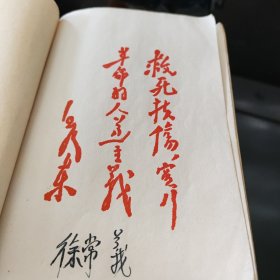 救死扶伤，实行
革命的人道主义
毛泽东
徐常义